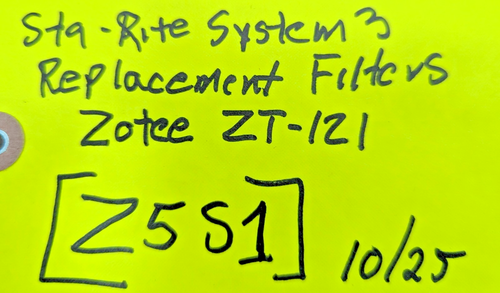 Sta-Rite System 3
Replacement Filters
Zotee ZT-121
[Z5S1] 10/25